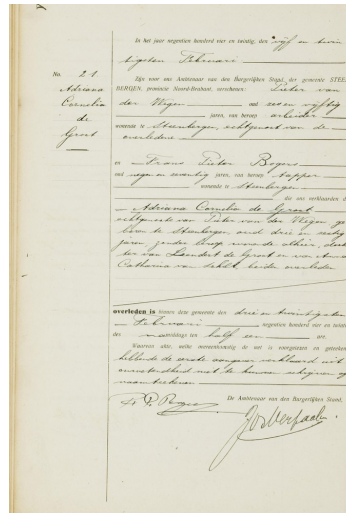 In het jaar negentien honderd vier en twintig, den vijf en twin
tigsten Februari
No. 21
Zijn voor ons Ambtenaar van den Burgerlijken Stand, der gemeente STEEN
Adriana
BERGEN, provincie Noord-Brabant, verschenen: Pieter van
Cornelia
der Wegen oud zes en vijftig
de
jaren, van beroep arbeider
Groot
wonende te Steenbergen, echtgenoot van de
overledene
en Frans Pieter Bogers
oud negen en seventig jaren, van beroep tapper
wonende te Steenbergen
die ons verklaarden d
Adriana Cornelia de Groot
echtgenoote van Pieter van der Wegen ge
boren te Steenbergen, oud drie en zestig
jaren zonder beroep wonende alhier, doch
ter van Leendert de Groot en van Anna
Catharina van beiden overleden
overleden is binnen deze gemeente den drie en twintigsten
Februari negentien honderd vier en twint
des middags ten half een ure.
Waarvan akte, welke overeenkomstig de wet is voorgelezen en geteeken
hebbende de eerste aangever verklaard uit
onervarenheid niet te kunnen schrijven of
naamteekenen
De Ambtenaar van den Burgerlijken Stand,
F. P. Bogers